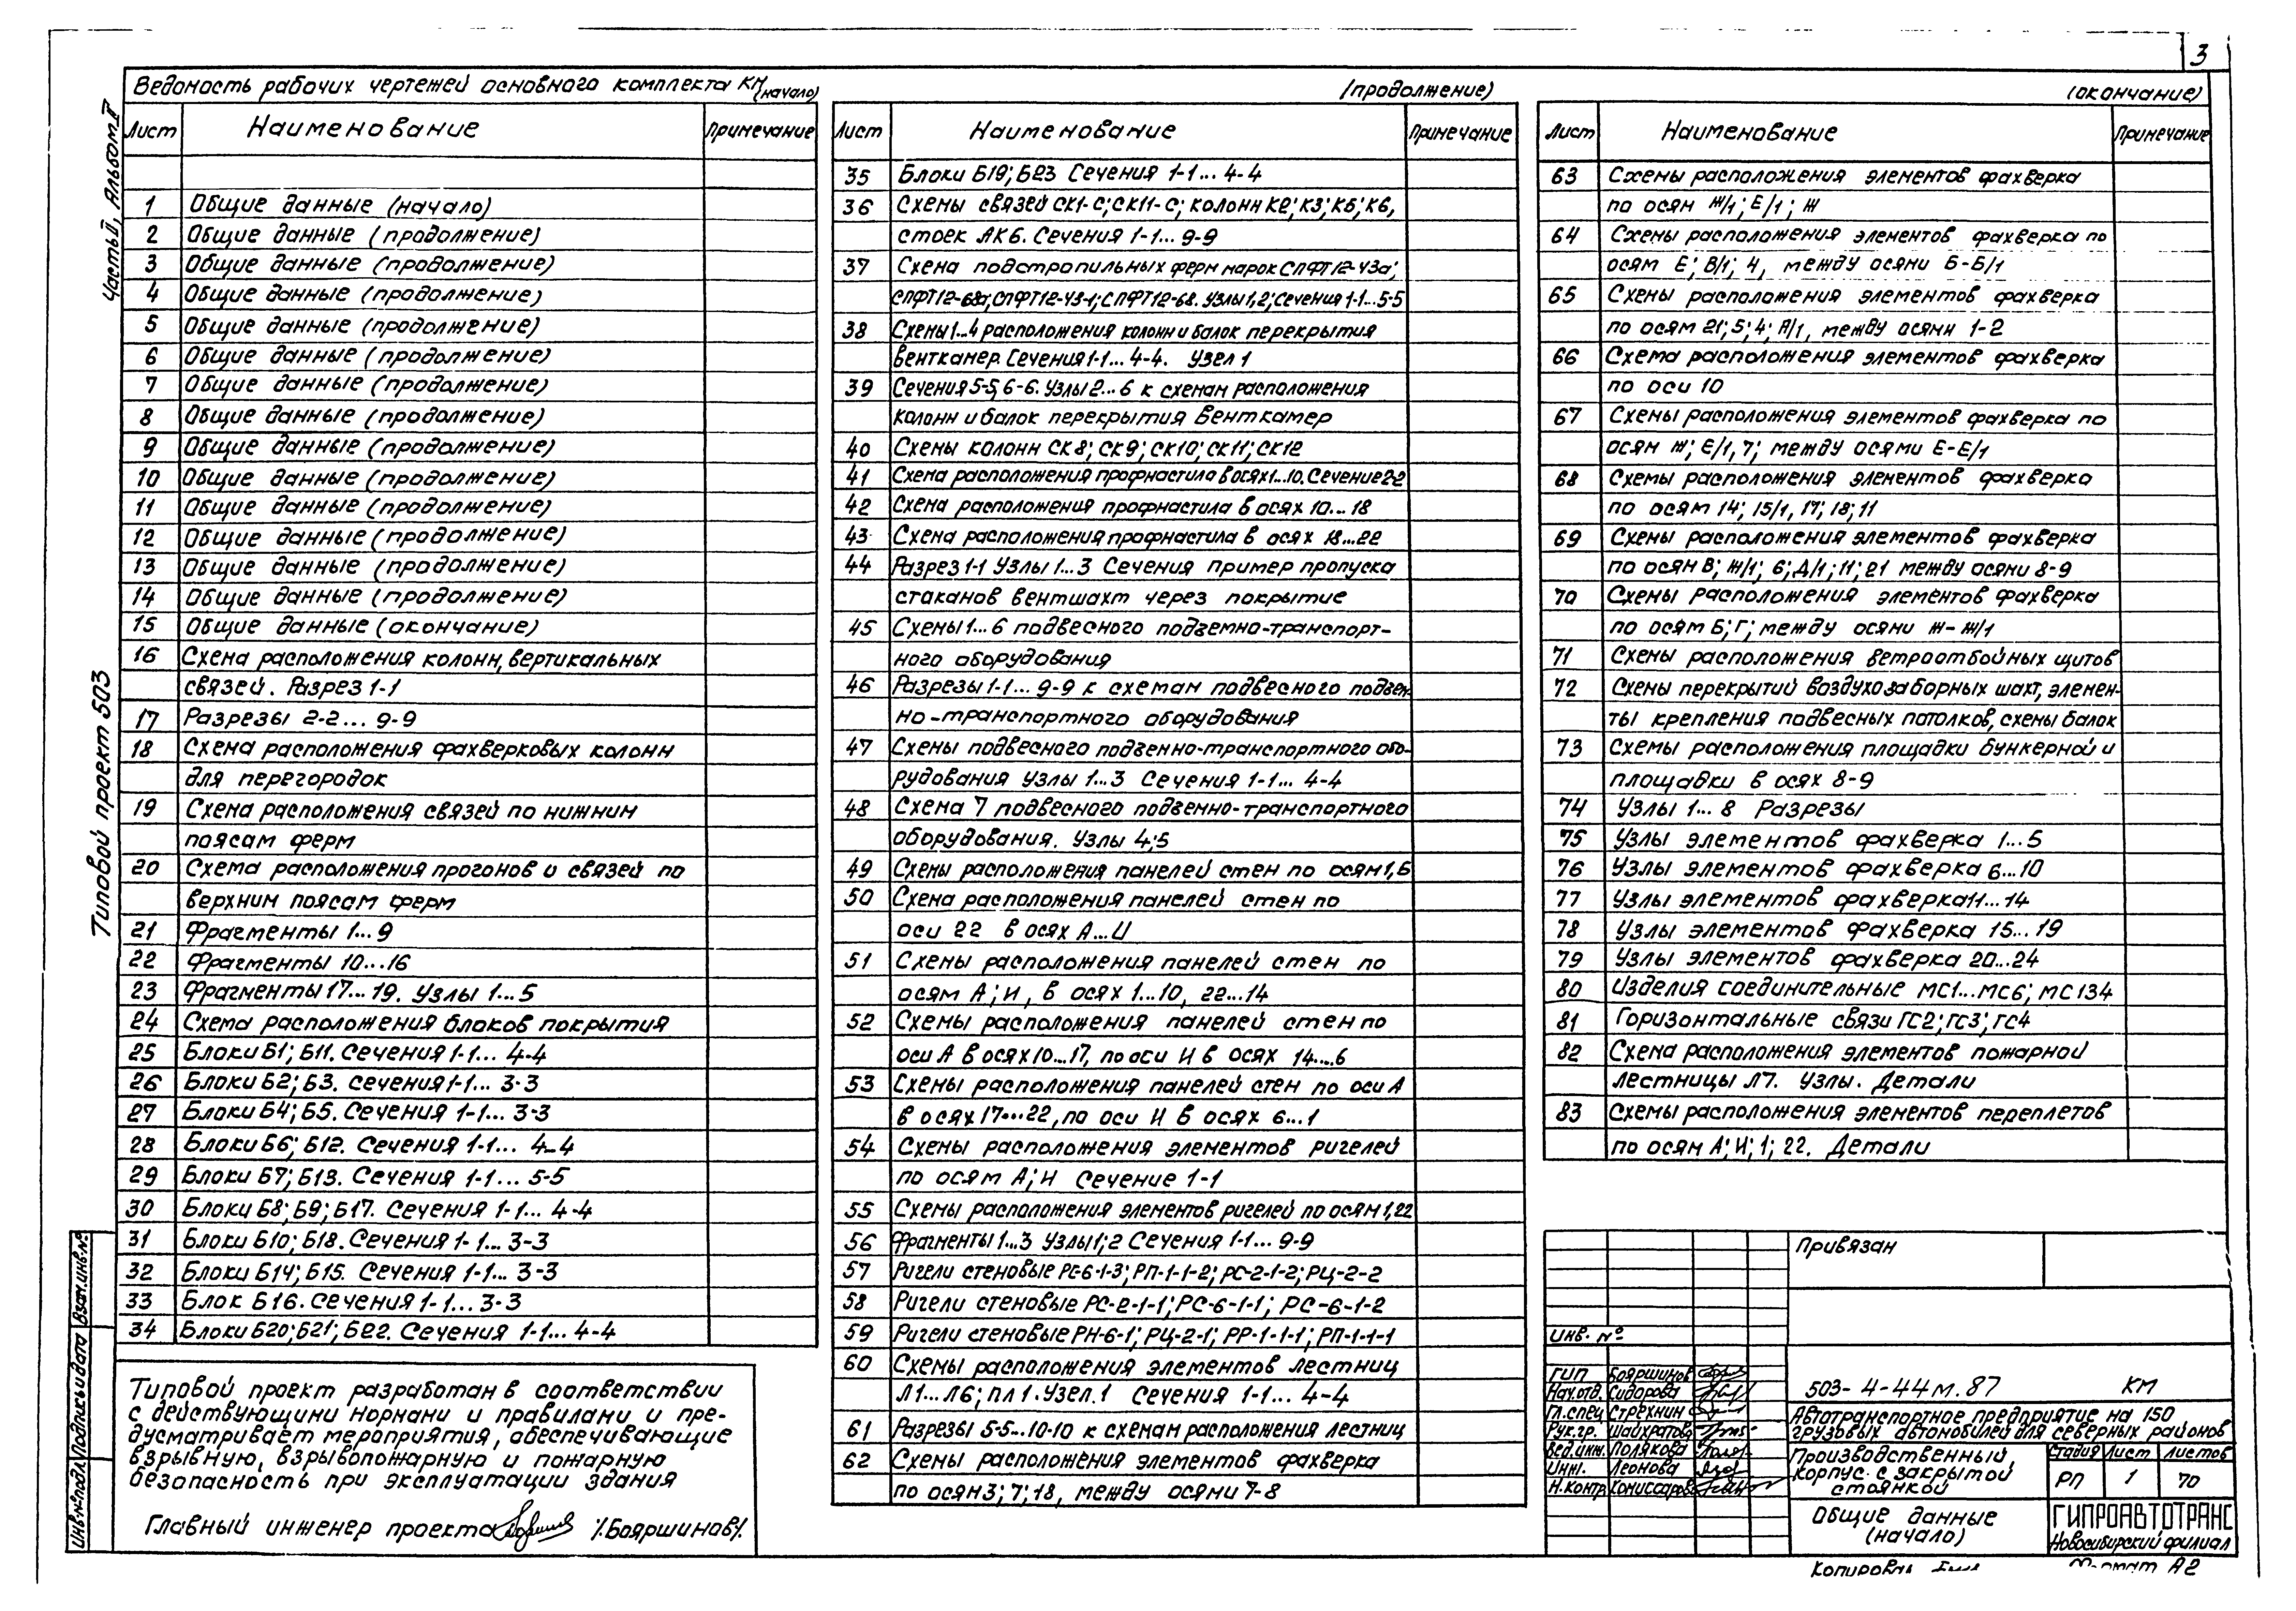 3
Ведомость рабочих чертежей основного комплекта КМ (начало)
(продолжение)
(окончание)
Часть II, Альбом II
Типовой проект 503
Лист Наименование Примечание
1 Общие данные (начало)
2 Общие данные (продолжение)
3 Общие данные (продолжение)
4 Общие данные (продолжение)
5 Общие данные (продолжение)
6 Общие данные (продолжение)
7 Общие данные (продолжение)
8 Общие данные (продолжение)
9 Общие данные (продолжение)
10 Общие данные (продолжение)
11 Общие данные (продолжение)
12 Общие данные (продолжение)
13 Общие данные (продолжение)
14 Общие данные (продолжение)
15 Общие данные (окончание)
16 Схема расположения колонн, вертикальных
связей. Разрез 1-1
17 Разрезы 2-2... 9-9
18 Схема расположения фахверковых колонн
для перегородок
19 Схема расположения связей по нижним
поясам ферм
20 Схема расположения прогонов и связей по
верхним поясам ферм
21 Фрагменты 1...9
22 Фрагменты 10...16
23 Фрагменты 17...19. Узлы 1...5
24 Схема расположения блоков покрытия
25 Блоки Б1; Б11. Сечения 1-1... 4-4
26 Блоки Б2; Б3. Сечения 1-1... 3-3
27 Блоки Б4; Б5. Сечения 1-1... 3-3
28 Блоки Б6; Б12. Сечения 1-1... 4-4
29 Блоки Б7; Б13. Сечения 1-1... 5-5
30 Блоки Б8; Б9; Б17. Сечения 1-1... 4-4
31 Блоки Б10; Б18. Сечения 1-1... 3-3
32 Блоки Б14; Б15. Сечения 1-1... 3-3
33 Блок Б16. Сечения 1-1... 3-3
34 Блоки Б20; Б21; Б22. Сечения 1-1... 4-4
Лист Наименование Примечание
35 Блоки Б19; Б23 Сечения 1-1... 4-4
36 Схемы связей СК1-С; СК11-С; колонн К2; К3; К5; К6,
стоек АК6. Сечения 1-1... 9-9
37 Схема подстропильных ферм марок СПФТ12-43а;
СПФТ12-68а; СПФТ12-43-1; СПФТ12-68. Узлы 1, 2; Сечения 1-1...5-5
38 Схемы 1...4 расположения колонн и балок перекрытия
венткамер. Сечения 1-1... 4-4. Узел 1
39 Сечения 5-5, 6-6. Узлы 2...6 к схемам расположения
колонн и балок перекрытия венткамер
40 Схемы колонн СК8; СК9; СК10; СК11; СК12
41 Схема расположения профнастила в осях 1...10. Сечение 2-2
42 Схема расположения профнастила в осях 10...18
43 Схема расположения профнастила в осях 18...22
44 Разрез 1-1 Узлы 1...3 Сечения пример пропуска
стаканов вентшахт через покрытие
45 Схемы 1...6 подвесного подъемно-транспорт-
ного оборудования
46 Разрезы 1-1... 9-9 к схемам подвесного подъем-
но-транспортного оборудования
47 Схемы подвесного подъемно-транспортного обо-
рудования Узлы 1...3 Сечения 1-1... 4-4
48 Схема 7 подвесного подъемно-транспортного
оборудования. Узлы 4;5
49 Схемы расположения панелей стен по осям 1, Б
50 Схема расположения панелей стен по
оси 22 в осях А...И
51 Схемы расположения панелей стен по
осям А; И, в осях 1...10, 22...14
52 Схемы расположения панелей стен по
оси А в осях 10...17, по оси И в осях 14...6
53 Схемы расположения панелей стен по оси А
в осях 17...22, по оси И в осях 6...1
54 Схемы расположения элементов ригелей
по осям А; И Сечение 1-1
55 Схемы расположения элементов ригелей по осям 1,22
56 Фрагменты 1...3 Узлы 1; 2 Сечения 1-1... 9-9
57 Ригели стеновые РС-6-1-3; РП-1-1-2; РС-2-1-2; РЦ-2-2
58 Ригели стеновые РС-2-1-1; РС-6-1-1; РС-6-1-2
59 Ригели стеновые РН-6-1; РЦ-2-1; РР-1-1-1; РП-1-1-1
60 Схемы расположения элементов лестниц
Л1...Л6; пл 1. Узел. 1 Сечения 1-1... 4-4
61 Разрезы 5-5...10-10 к схемам расположения лестниц
62 Схемы расположения элементов фахверка
по осям 3; 7; 18, между осями 7-8
Лист Наименование Примечание
63 Схемы расположения элементов фахверка
по осям Ж/1; Е/1; Ж
64 Схемы расположения элементов фахверка по
осям Е; В/1; 4, между осями Б-Б/1
65 Схемы расположения элементов фахверка
по осям 21; 5; 4; А/1, между осями 1-2
66 Схема расположения элементов фахверка
по оси 10
67 Схемы расположения элементов фахверка по
осям Ж; Е/1, 7; между осями Е-Е/1
68 Схемы расположения элементов фахверка
по осям 14; 15/1, 17; 18; 11
69 Схемы расположения элементов фахверка
по осям В; Ж/1; 6; Д/1; 11; 21 между осями 8-9
70 Схемы расположения элементов фахверка
по осям Б; Г; между осями Ж-Ж/1
71 Схемы расположения ветроотбойных щитов
72 Схемы перекрытий воздухозаборных шахт, элемен-
ты крепления подвесных потолков, схемы балок
73 Схемы расположения площадки бункерной и
площадки в осях 8-9
74 Узлы 1... 8 Разрезы
75 Узлы элементов фахверка 1...5
76 Узлы элементов фахверка 6...10
77 Узлы элементов фахверка 11...14
78 Узлы элементов фахверка 15...19
79 Узлы элементов фахверка 20...24
80 Изделия соединительные МС1...МС6; МС134
81 Горизонтальные связи ГС2; ГС3; ГС4
82 Схема расположения элементов пожарной
лестницы Л7. Узлы. Детали
83 Схемы расположения элементов переплетов
по осям А; И; 1; 22. Детали
Типовой проект разработан в соответствии
с действующими нормами и правилами и пре-
дусматривает мероприятия, обеспечивающие
взрывную, взрывопожарную и пожарную
безопасность при эксплуатации здания
Главный инженер проекта /Бояршинов/
Взам.инв.№
Подпись и дата
Инв.№ подл.
Привязан
Инв. №
ГИП Бояршинов
Нач.отд. Сидорова
Гл.спец Стрехнин
Рук.гр. Шайхратова
Вед.инж. Полякова
Инж. Леонова
Н.контр Комиссаров
503-4-44м.87 КМ
Автотранспортное предприятие на 150
грузовых автомобилей для северных районов
Производственный
корпус с закрытой
стоянкой
Стадия Лист Листов
РП 1 70
Общие данные
(начало)
ГИПРОАВТОТРАНС
Новосибирский филиал
Копировал
Формат А2